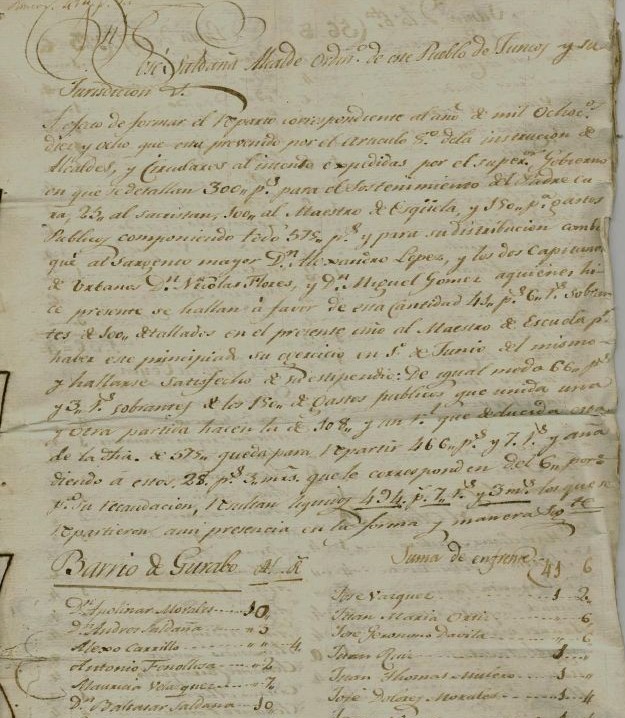 José Saldaña Alcalde Ordin.º de este Pueblo de Juncos y su
Jurisdiccion &.
A efecto de formar el reparto correspondiente al año de mil Ochoc.s
diez y ocho que esta prevenido por el Articulo 8.º dela instrucion de
Alcaldes, y Circulares al intento expedidas por el super.or Gobierno
en que se detallan 300,, p.s para el Sostenimiento del Padre Cu
ra, 25,, al sacristan, 100,, al Maestro de Esqüela, y 150,, p.a gastos
Publicos componiendo todo 575,, p.s y para su distribucion combo
qué al Sargento mayor D.n Alexandro Lopez, y los dos Capitanes
de Urbanos D.n Nicolas Flores, y D.n Miguel Gomez aquienes hi
ce presente se hallan á favor de esta Cantidad 41,, p.s 6,, r.s sobran
tes de 100,, detallados en el presente año al Maestro de Escuela p.r
haber este principiado su exercicio en 1.º de Junio del mismo
y hallarse satisfecho de su estipendio: De igual modo 66,, p.s
y 3,, r.s sobrantes de los 150,, de Gastos publicos que unida una
y otra partida hacen la de 108,, y un r.l que deducida
de la dha. de 575,, queda para repartir 466,, p.s y 7,, r.s y aña
diendo a estos 28,, p.s 3 mrs. que le corresponden del 6,, por
p.r su recaudacion, resultan liquidos 494,, p.s 7,, r.s y 3 m.s los que se
repartieron ami presencia en la forma y manera
Suma de enfrente 41 6
Barrio de Gurabo P.s R.s
D.n Apolinar Morales 10
D.n Andres Saldaña ,, 5
Alexo Carrillo ,, ,, 4
Antonio Fenollosa ,, 2
Mauricia Vasquez 7
D.n Baltasar Saldaña 10
José Vazquez 1 2
Juan Maria Ortiz ,, 6
José Geronimo Davila ,, 6
Juan Ruiz 1
Juan Thomas Mulero 1
José Dolores Morales 1 4